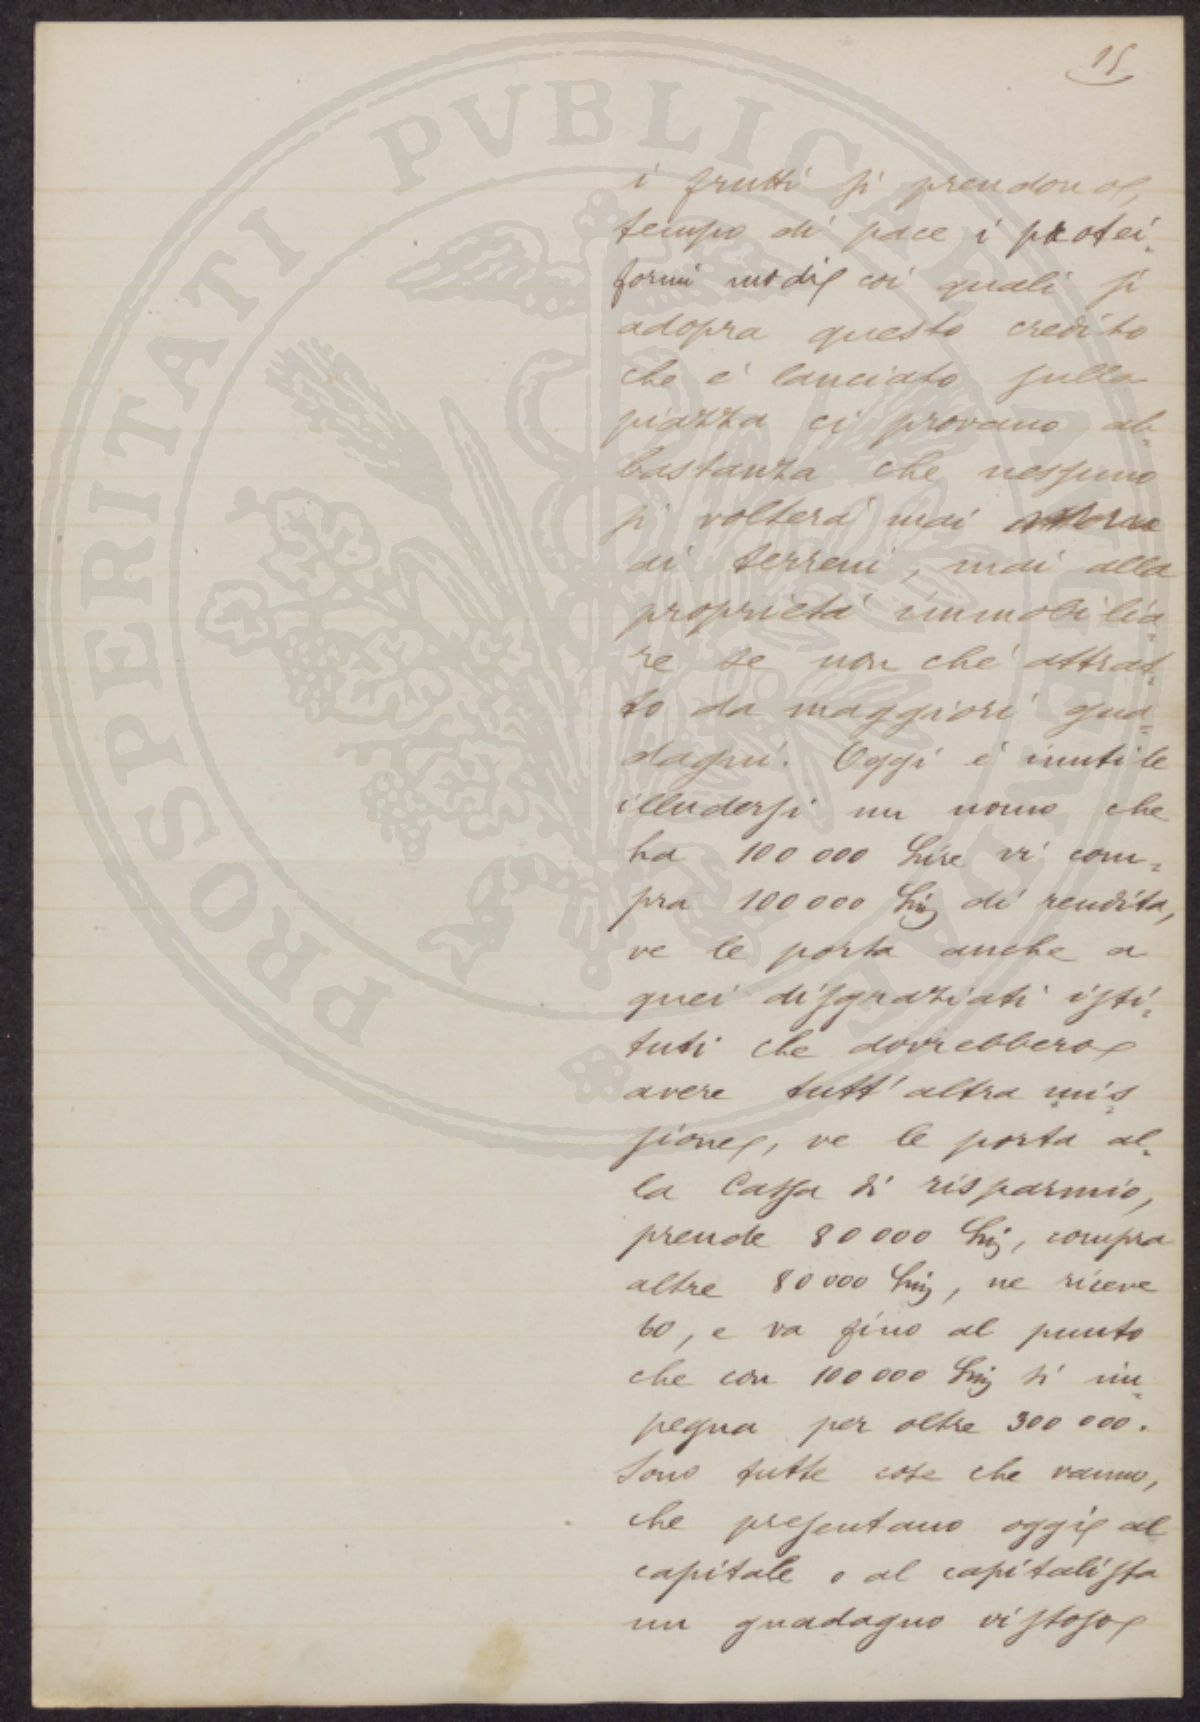 15
i frutti si prendono,
tempo di pace i protei-
formi modi coi quali si
adopra questo credito
che è lanciato sulla
piazza ci provano ab-
bastanza che nessuno
si volterà mai
ai terreni, mai alla
proprietà immobilia-
re se non ché attrat-
to da maggiori gua-
dagni. Oggi è inutile
illudersi un uomo che
ha 100 000 Lire vi com-
pra 100 000 Lire di rendita,
ve le porta anche a
quei disgraziati isti-
tuti che dovrebbero
avere tutt'altra mis-
sione, ve le porta al-
la Cassa di risparmio,
prende 80 000 Lire, compra
altre 80 000 Lire, ne riceve
60, e va fino al punto
che con 100 000 Lire si im-
pegna per oltre 300 000.
Sono tutte cose che vanno,
che presentano oggi al
capitale o al capitalista
un guadagno vistoso
PROSPERITATI PVBLICAE AVGENDAE